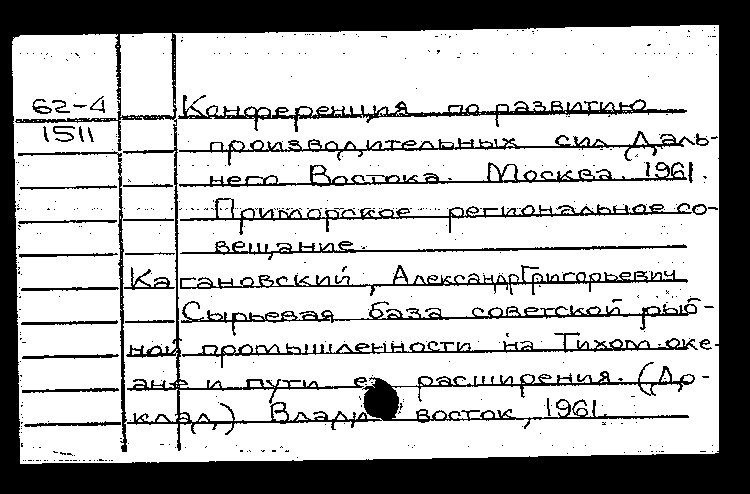 62-4
1511
Конференция по развитию
производительных сил Даль-
него Востока. Москва. 1961.
Приморское региональное со-
вещание.
Кагановский, Александр Григорьевич
Сырьевая база советской рыб-
ной промышленности на Тихом оке-
ане и пути ее расширения. (До-
клад). Владивосток, 1961.